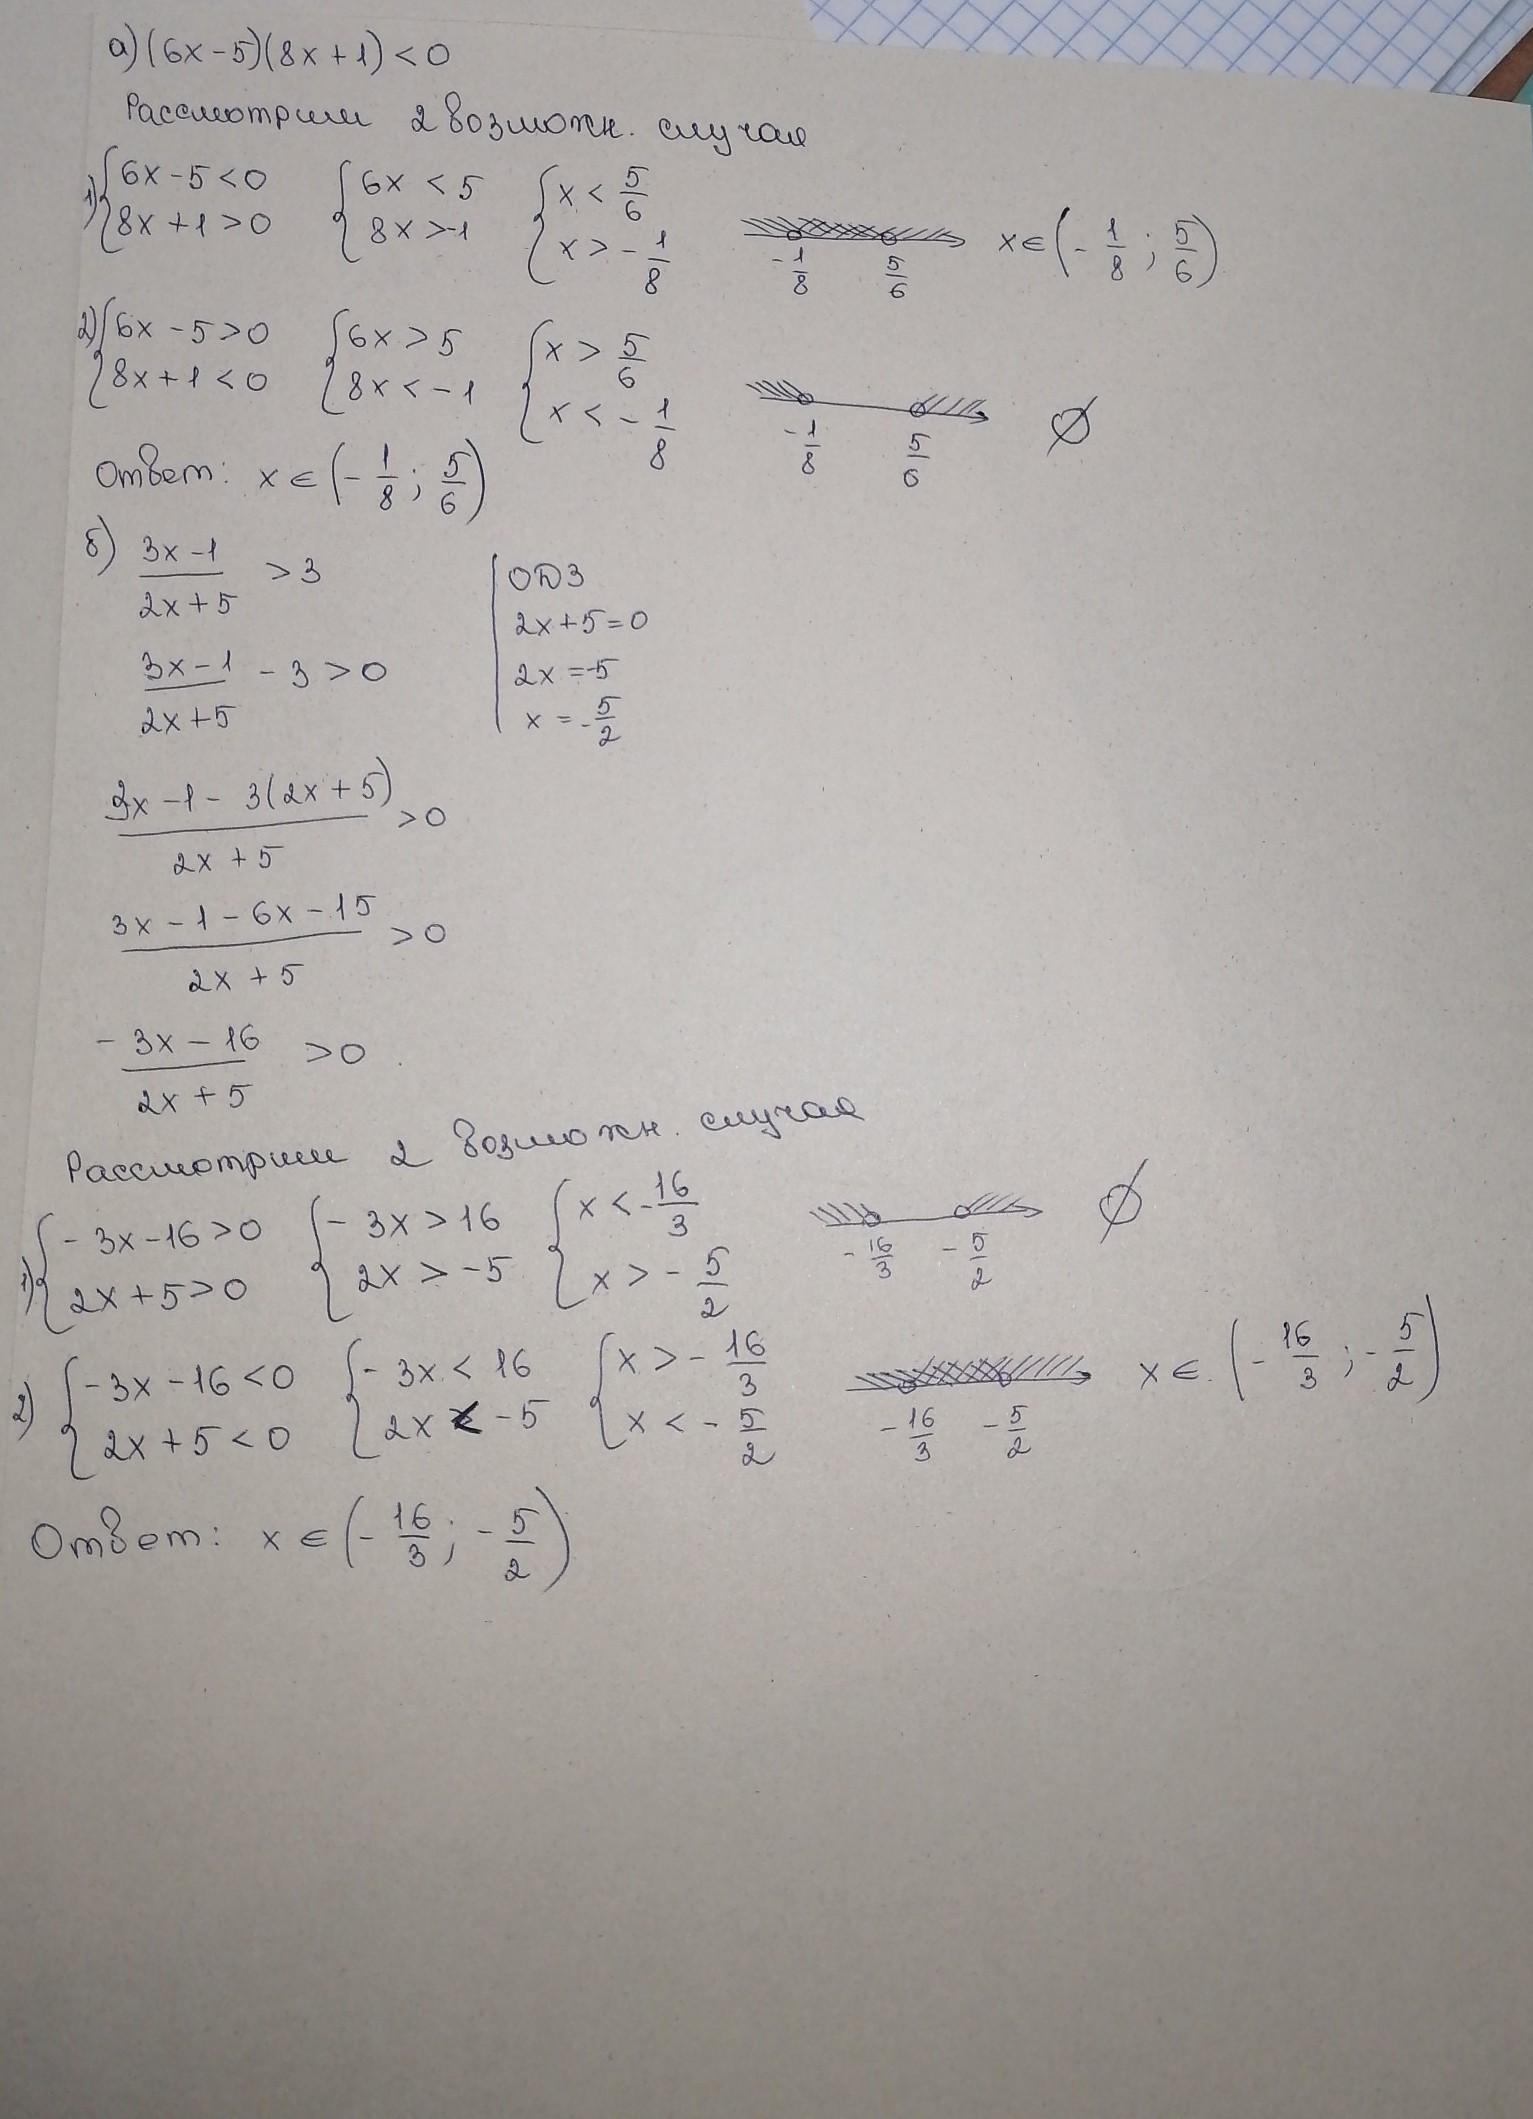 а) (6x-5)(8x+1)<0
Рассмотрим 2 возможн. случая
1) {6x-5<0 {6x<5 {x<5/6
{8x+1>0 {8x>-1 {x>-1/8
-1/8 5/6 x∈(-1/8; 5/6)
2) {6x-5>0 {6x>5 {x>5/6
{8x+1<0 {8x<-1 {x<-1/8
-1/8 5/6 ∅
Ответ: x∈(-1/8; 5/6)
б) (3x-1)/(2x+5) >3
(3x-1)/(2x+5) -3>0
ОДЗ
2x+5=0
2x=-5
x=-5/2
(3x-1-3(2x+5))/(2x+5) >0
(3x-1-6x-15)/(2x+5) >0
(-3x-16)/(2x+5) >0
Рассмотрим 2 возможн. случая
1) {-3x-16>0 {-3x>16 {x<-16/3
{2x+5>0 {2x>-5 {x>-5/2
-16/3 -5/2 ∅
2) {-3x-16<0 {-3x<16 {x>-16/3
{2x+5<0 {2x<-5 {x<-5/2
-16/3 -5/2 x∈.(-16/3; -5/2)
Ответ: x∈(-16/3; -5/2)